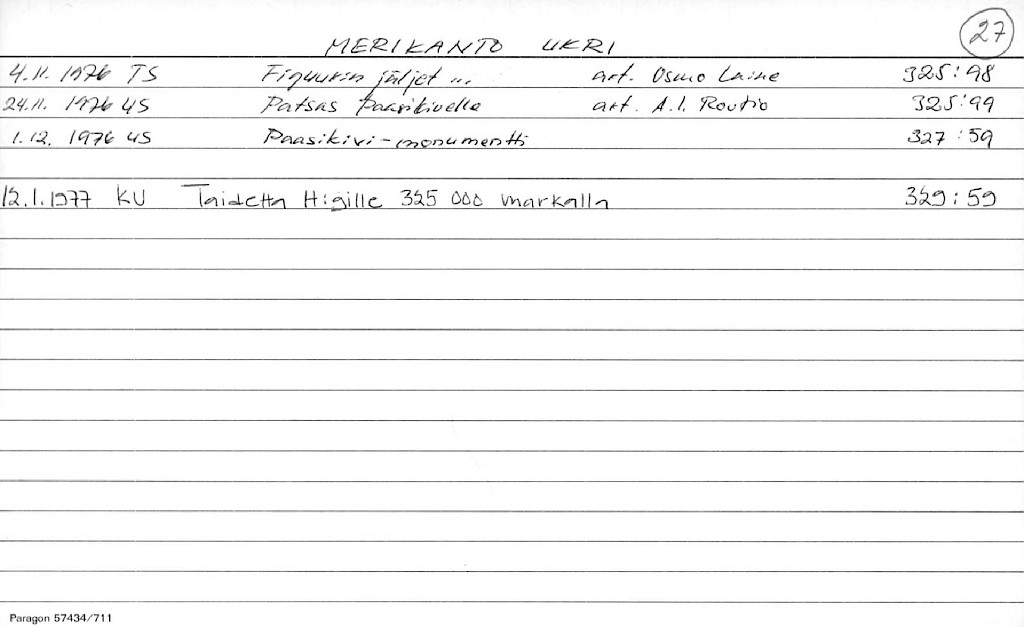 27
MERIKANTO UKRI
4.11. 1976 TS Figuurin jäljet ... art. Osmo Laine 325:98
24.11. 1976 US Patsas Paasikivelle art. A.I. Routio 325:99
1.12. 1976 US Paasikivi-monumentti 327:59
12.1.1977 KU Taidetta H:gille 325 000 markalla 329:59
Paragon 57434/711